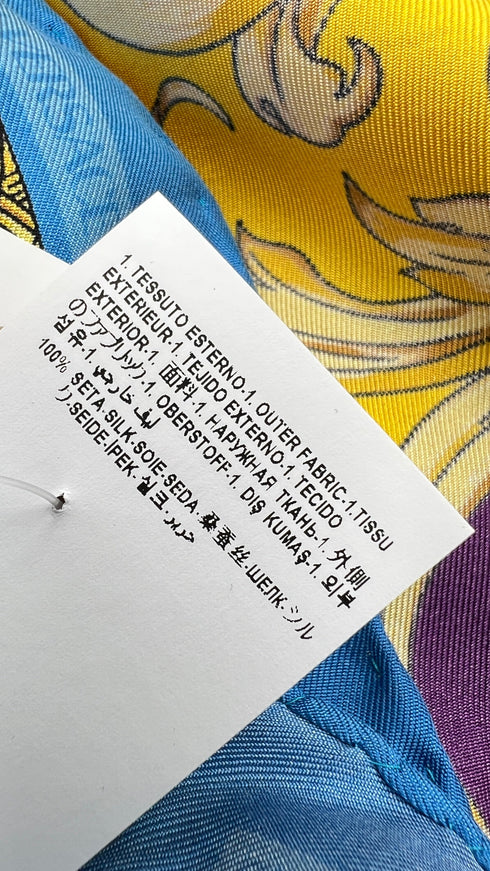 1. TESSUTO ESTERNO-1. OUTER FABRIC-1.TISSU
EXTERIEUR-1. TEJIDO EXTERNO-1. TECIDO
EXTERIOR-1. 面料-1. НАРУЖНАЯ ТКАНЬ-1. 外側
のファブリック-1. OBERSTOFF-1. DIŞ KUMAŞ-1. 외부
섬유-1. ليف خارجي
100% SETA.SILK.SOIE.SEDA.桑蚕丝.ШЕЛК.シル
ク.SEIDE.İPEK.실크.حرير